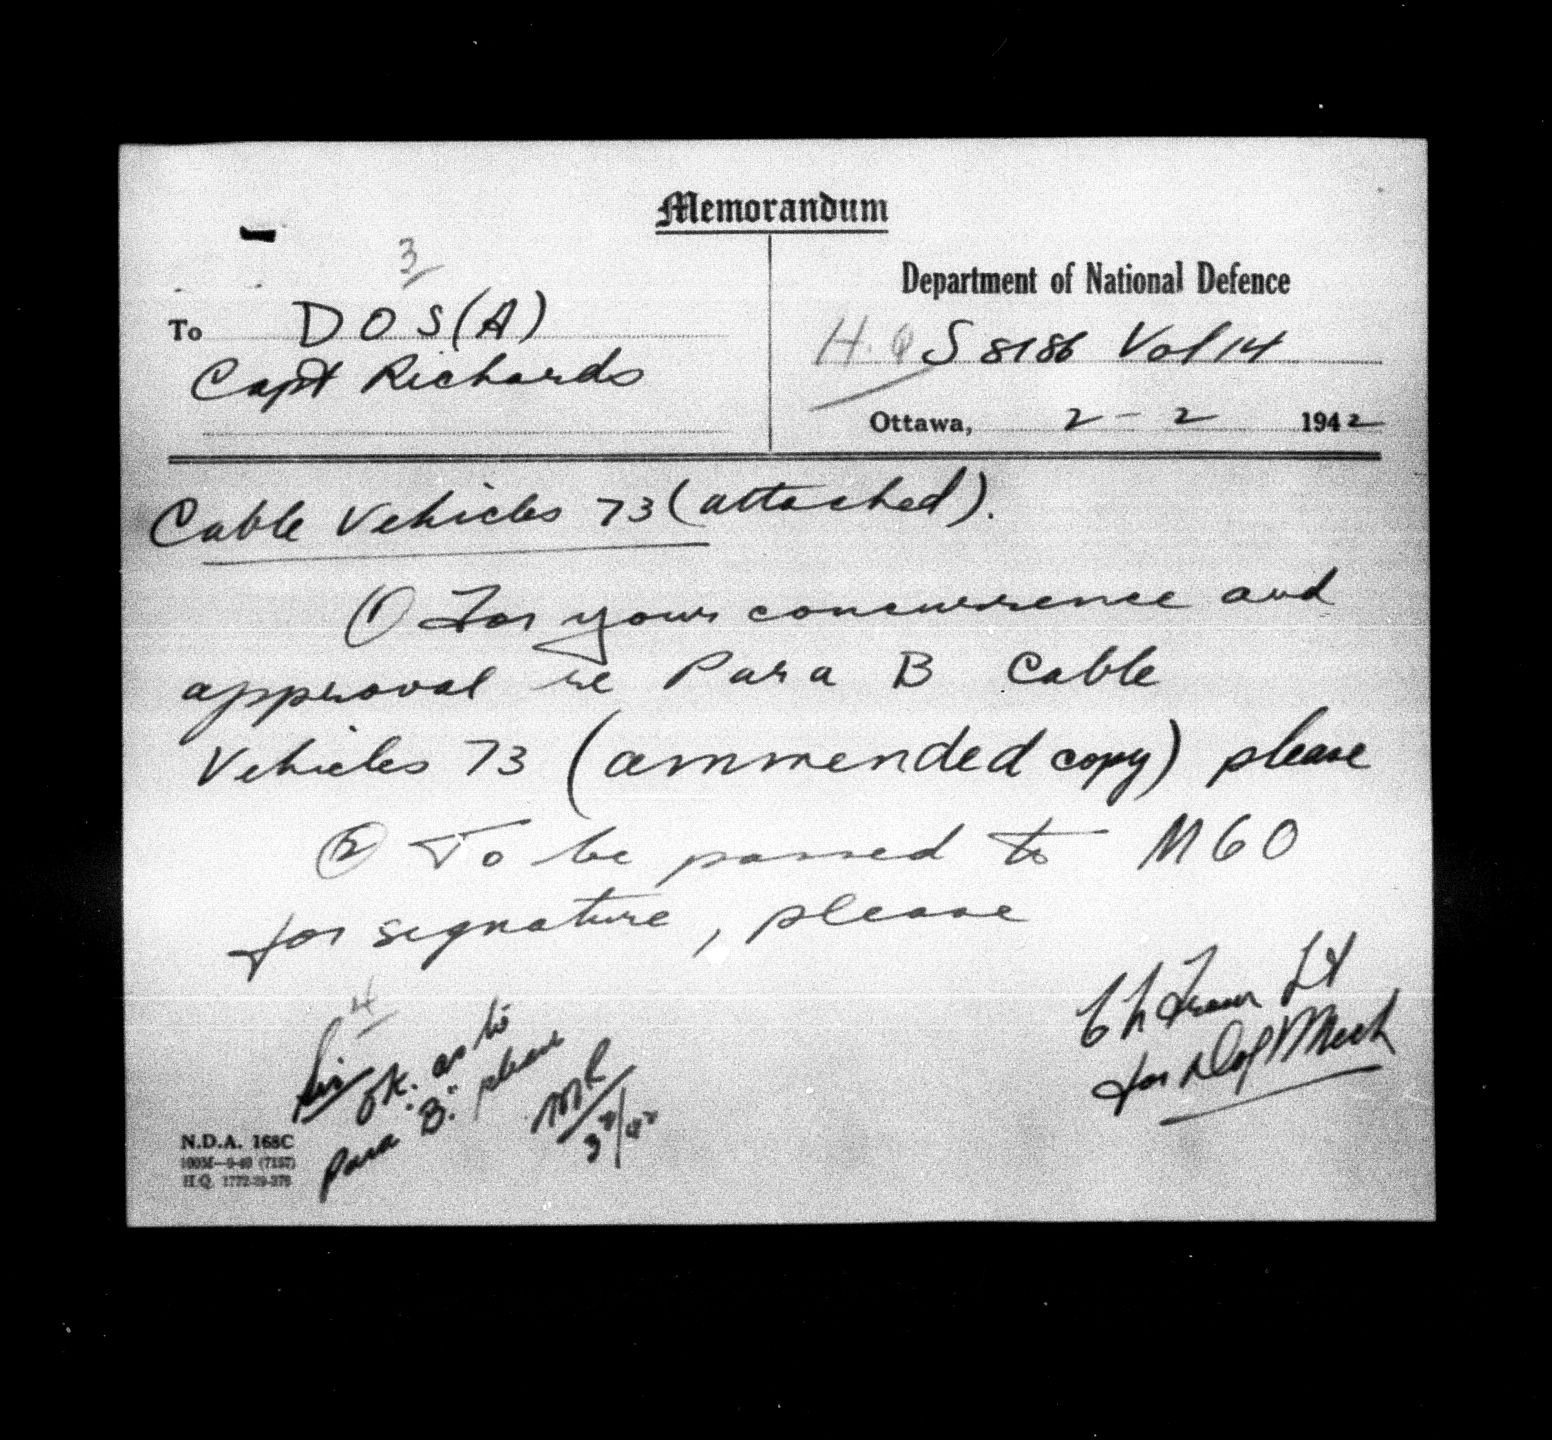 Memorandum
3
Department of National Defence
To DOS(A)
Capt Richards
H.Q S 8186 Vol 14
Ottawa, 2 - 2 1942
Cable Vehicles 73 (attached).
① For your concurrence and
approval re Para B Cable
Vehicles 73 (ammended copy) please
② To be passed to MGO
for signature, please
4
Lt
for Mech
OK. as to
para "B." please
3/2/42
N.D.A. 168C
100M—9-40 (7157)
H.Q. 1772-39-378